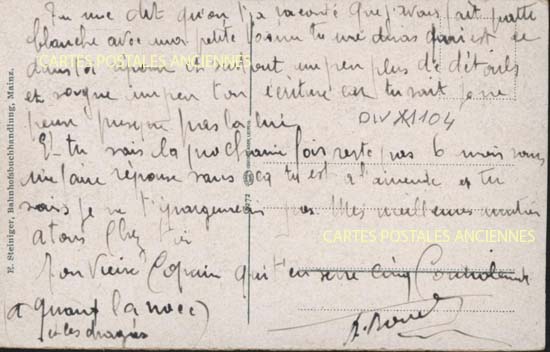 Tu me dit qu'on t'a raconté que j'avais fait patte
blanche avec une petite tu me diras qui est ce
un peu plus de détails
et soigne un peu ton écriture car tu sait je ne
peux presque pas la lire
DIV XX1104
Et tu sais la prochaine fois reste pas 6 mois sans
me faire réponse sans ça tu est à l'amende et tu
sais je ne t'épargnerai pas Mes meilleures
à tous Chez toi
Ton Vieux Copain qui t'en serre Cinq Cordialement
(à quand la noce)
et les dragées
CARTES POSTALES ANCIENNES
CARTES POSTALES ANCIENNES
E. Steiniger, Bahnhofsbuchhandlung, Mainz.